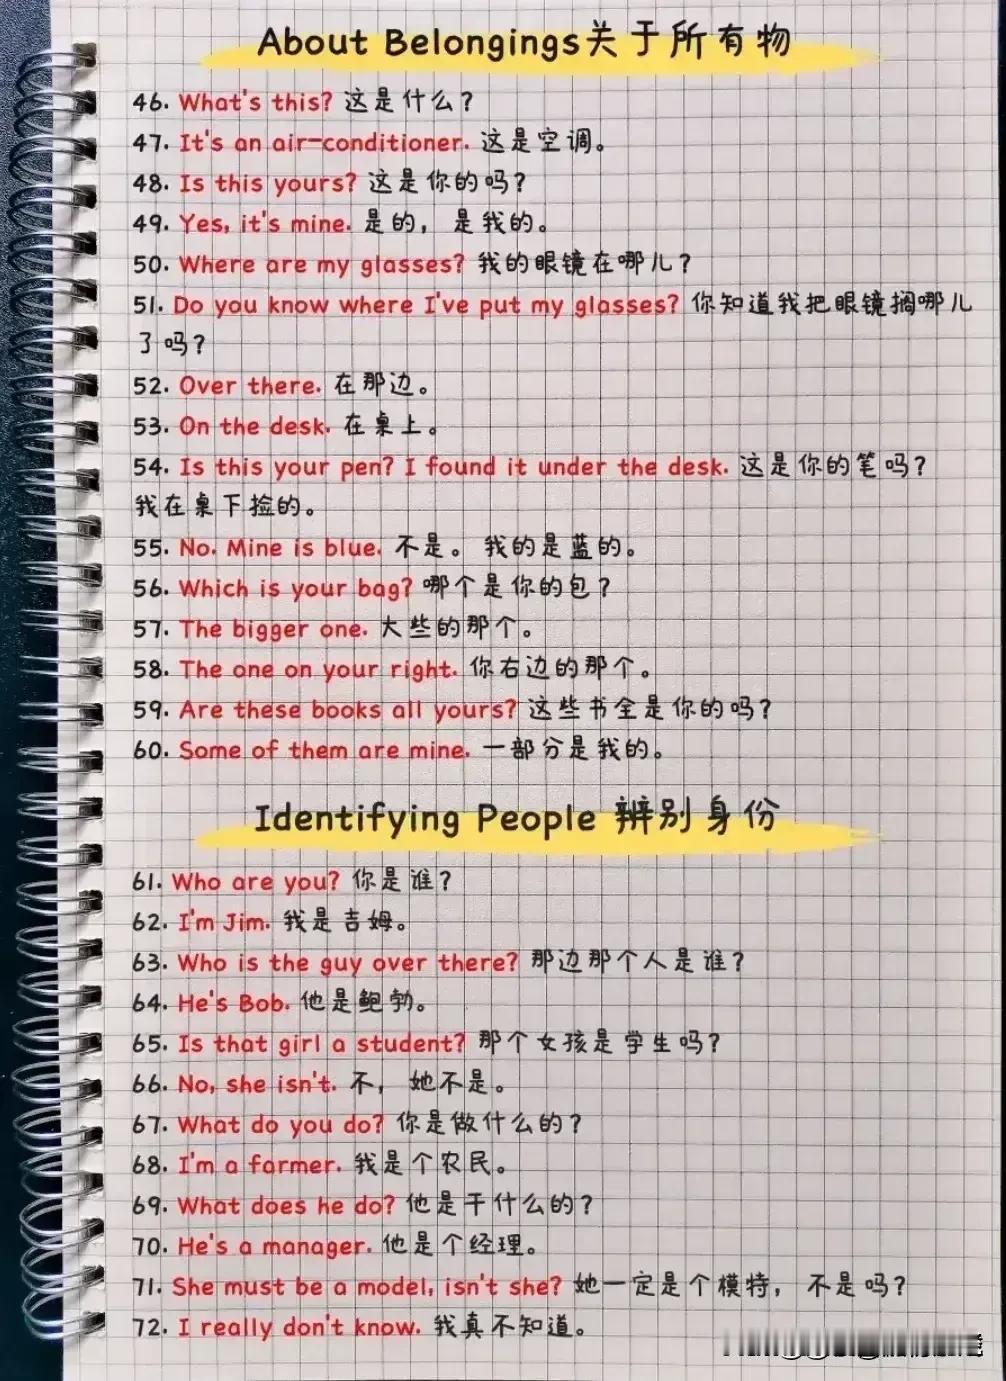 About Belongings关于所有物
46. What's this? 这是什么？
47. It's an air-conditioner. 这是空调。
48. Is this yours? 这是你的吗？
49. Yes, it's mine. 是的，是我的。
50. Where are my glasses? 我的眼镜在哪儿？
51. Do you know where I've put my glasses? 你知道我把眼镜搁哪儿
了吗？
52. Over there. 在那边。
53. On the desk. 在桌上。
54. Is this your pen? I found it under the desk. 这是你的笔吗？
我在桌下捡的。
55. No. Mine is blue. 不是。我的是蓝的。
56. Which is your bag? 哪个是你的包？
57. The bigger one. 大些的那个。
58. The one on your right. 你右边的那个。
59. Are these books all yours? 这些书全是你的吗？
60. Some of them are mine. 一部分是我的。
Identifying People 辨别身份
61. Who are you? 你是谁？
62. I'm Jim. 我是吉姆。
63. Who is the guy over there? 那边那个人是谁？
64. He's Bob. 他是鲍勃。
65. Is that girl a student? 那个女孩是学生吗？
66. No, she isn't. 不，她不是。
67. What do you do? 你是做什么的？
68. I'm a farmer. 我是个农民。
69. What does he do? 他是干什么的？
70. He's a manager. 他是个经理。
71. She must be a model, isn't she? 她一定是个模特，不是吗？
72. I really don't know. 我真不知道。